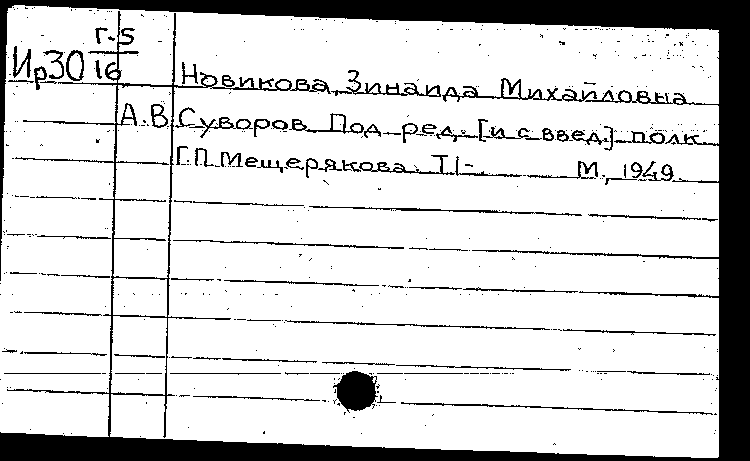 Г-5
Ир30 16
Новикова, Зинаида Михайловна
А.В. Суворов. Под ред. [и с введ.] полк.
Г.П. Мещерякова. Т1-. М., 1949.